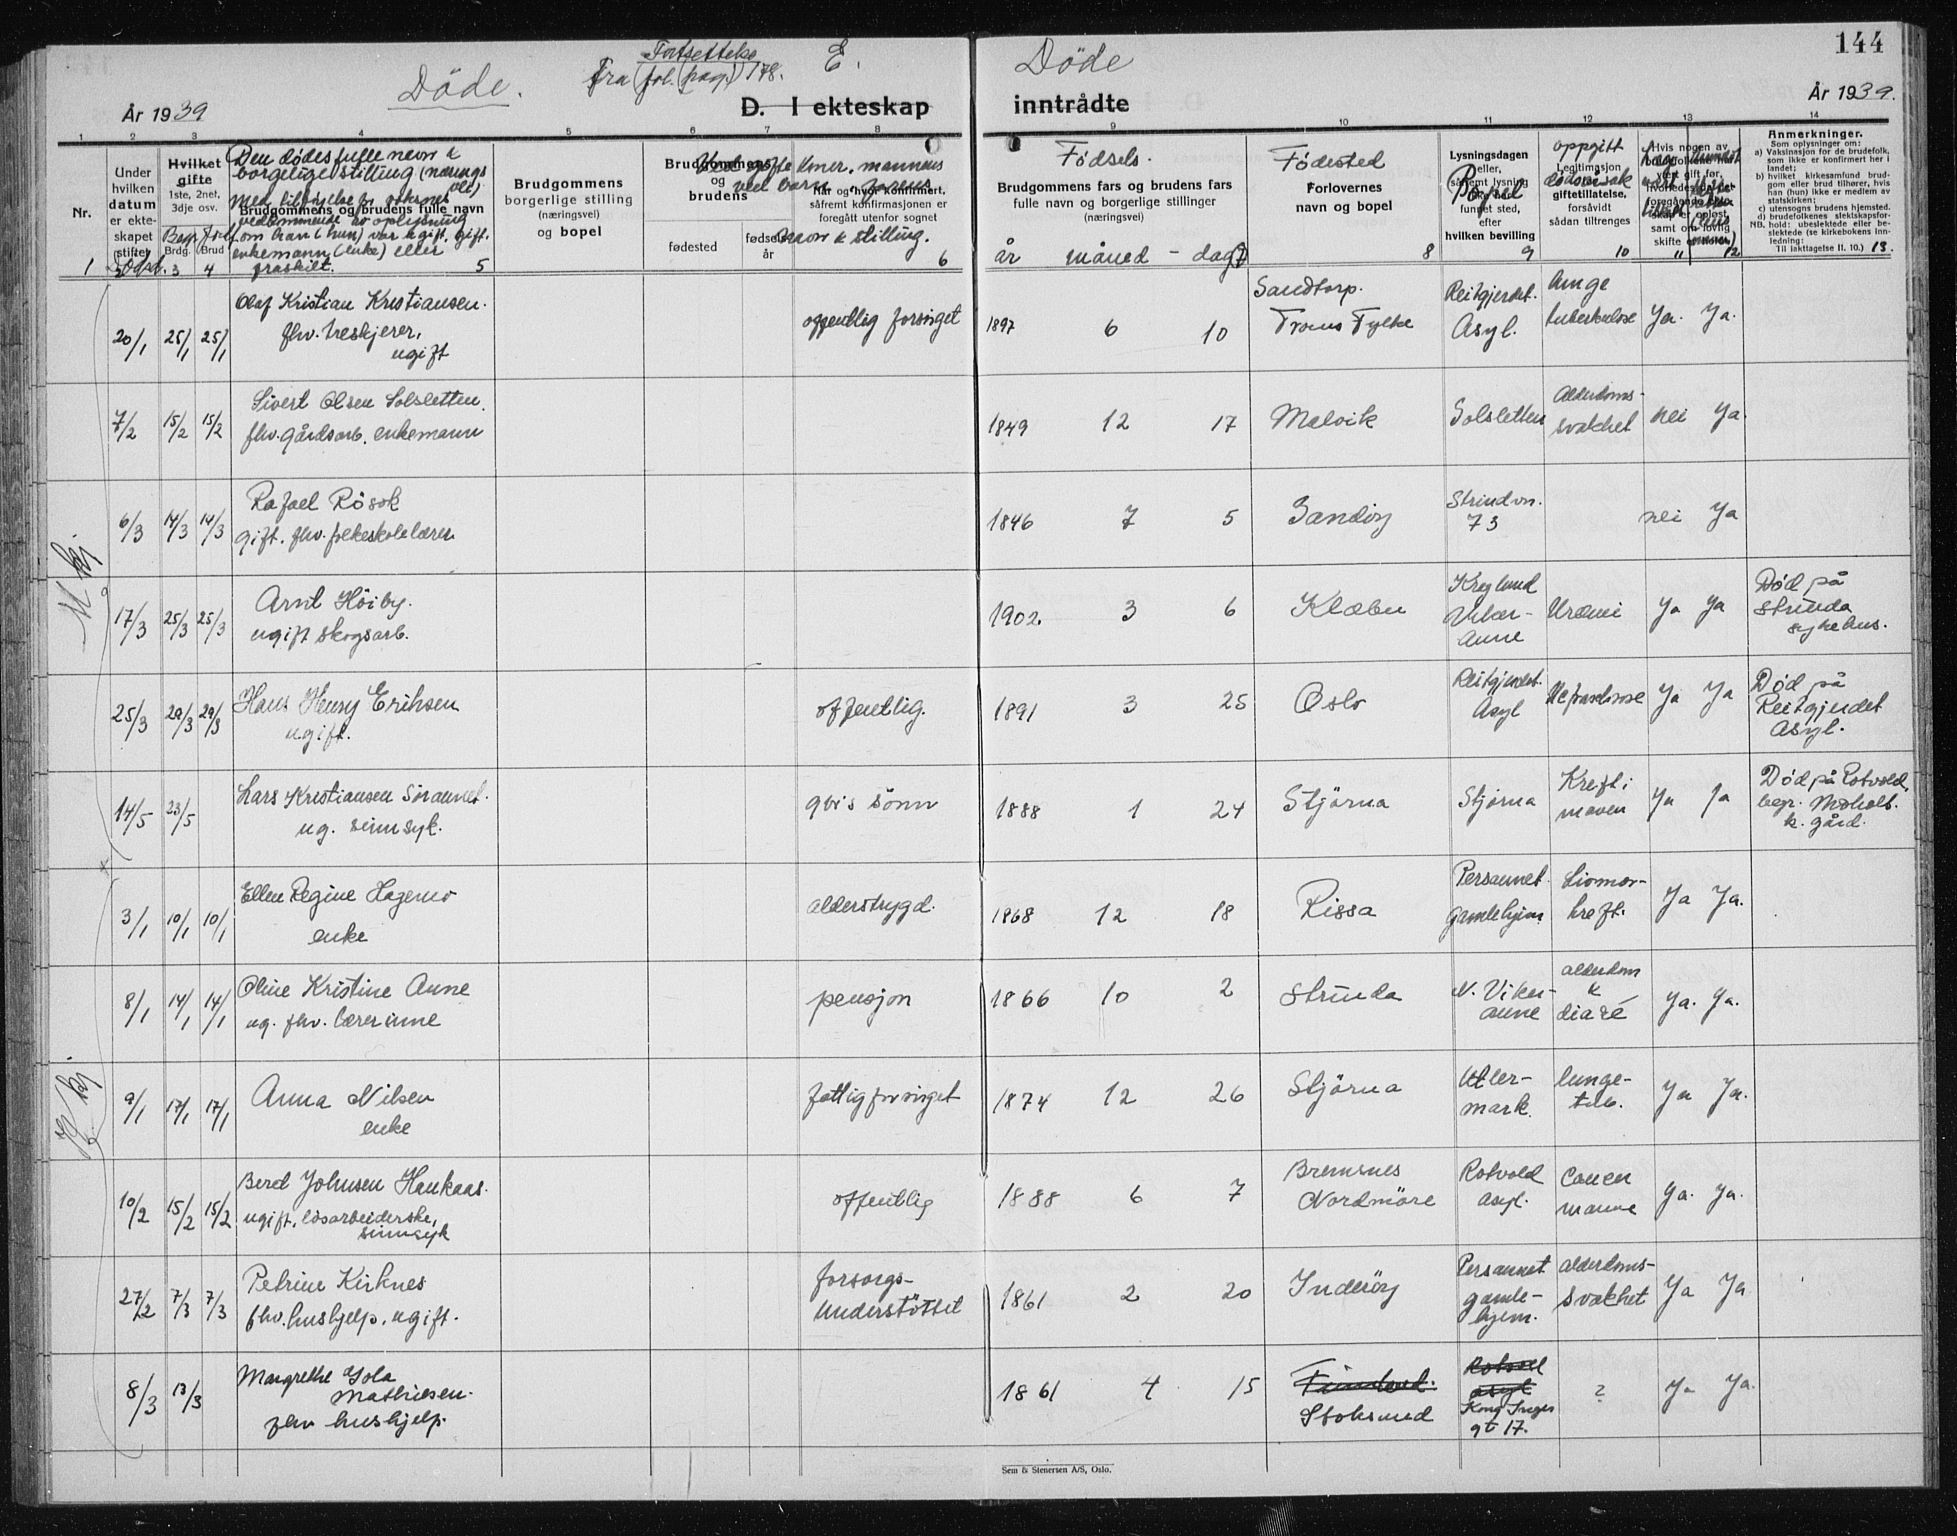 144
Fortsettelse
Døde. Fra (fol. (pag.) 178. E. Døde
År 1939 D. I ekteskap inntrådte År 1939.
1 2 3 4 5 6 7 8 9 10 11 12 13 14
Nr.
Under hvilken datum er ekteskapet stiftet
Hvilket gifte
1ste, 2net, 3dje osv.
Brdg. Brud
Den dødes fulle navn &
borgerlige stilling (nærings
vei)
Brudgommens og brudens fulle navn
om han (hun) var ugift, gift,
enkemann (enke) eller
fraskilt.
Brudgommens
borgerlige stilling
(næringsvei)
og bopel
Brudgommens
og
brudens
fødested
fødsels-
år
Når og hvor konfirmert,
såfremt konfirmasjonen er
foregått utenfor sognet
navn & stilling.
Fødsels.
Brudgommens fars og brudens fars
fulle navn og borgerlige stillinger
(næringsvei)
år måned - dag
Fødested
Forlovernes
navn og bopel
Lysningsdagen
eller,
såfremt lysning
ikke har
funnet sted,
efter
hvilken bevilling
Bopel
oppgitt
dødsårsak
Legitimasjon
giftetillatelse,
forsåvidt
sådan tiltrenges
Hvis nogen av
brudefolkene har
vært gift før,
hvorledes det
foregående ekte-
skap er opløst,
samt om lovlig
skifte er
Anmerkninger.
Som oplysninger om:
a) Vaksinasjon for de brudefolk,
som ikke er konfirmert her i
landet;
b) hvilket kirkesamfund brud-
gom eller brud tilhører, hvis
han (hun) ikke er medlem av
statskirken;
c) utensogns brudens hjemsted.
d) brudefolkenes slektskapsfor-
NB. hold: ubeslektede eller be-
slektede (se kirkebokens inn-
ledning:
Til iakttagelse II. 10.)
1 3 4 5 6 7 8 9 10 11 12 13.
M kj.
20/1 25/1 25/1 Olaf Kristian Kristiansen. fhv. treskjerer, ugift offentlig forsørget 1897 6 10 Sandtorp. Troms Fylke Reitgjerdet. Asyl. tuberkulose Ja. Ja.
7/2 15/2 15/2 Sivert Olsen Solsletten. fhv. gårdsarb. enkemann 1849 12 17 Malvik Solsletten Alderdoms- svakhet nei Ja.
6/3 14/3 14/3 Rafael Røsok gift. fhv. folkeskolelærer 1846 7 5 Sandøy Strindvn. 73 nei Ja
17/3 25/3 25/3 Arnt Höiby. ugift skogsarb. 1902. 3 6 Klæbu Uræmi Ja Ja Død på Strinda sykehus.
25/3 29/3 29/3 Hans Henry Eriksen ugift. offentlig. 1891 3 25 Oslo Reitgjerdet. Asyl Ja Ja Død på Reitgjerdet Asyl.
14/5 23/5 Lars Kristiansen Söraunet. ug. sinnsyk. gbr's sønn 1888 1 24 Stjörna Stjørna Kreft i maven Ja Ja Død på Rotvold, begr. Moholt. k. gård.
K kj.
3/1 10/1 10/1 Ellen Regine Hagemo enke alderstrygd. 1868 12 18 Rissa Persaunet. gamlehjem kreft. Ja Ja.
8/1 14/1 14/1 Oline Kristine Aune ug. fhv. lærerinne pensjon 1866 10 2 Strinda N. Viker- aune alderdom & diaré Ja. Ja.
9/1 17/1 17/1 Anna Nilsen enke fattigforsørget 1874 12 26 Stjörna Utler- mark. lunge- tub. Ja Ja.
10/2 15/2 15/2 Berit Johnsen Haukaas. ugift. løsarbeiderske, sinnsyk offentlig 1888 6 7 Bremsnes Nordmöre Rotvold asyl. Cancer mamme Ja. Ja.
27/2 7/3 7/3 Petrine Kirknes fhv. hushjelp. ugift. forsorgs- understöttet 1861 2 20 Inderöy Persaunet gamle- hjem. alderdoms- svakhet Ja Ja
8/3 13/3 Margrethe Gola Mathiesen. fhv hushjelp. 1861 4 15 Stoksund Rotvoll asyl Kong Inges gt 17. ? Ja Ja.
Sem & Stenersen A/S, Oslo.